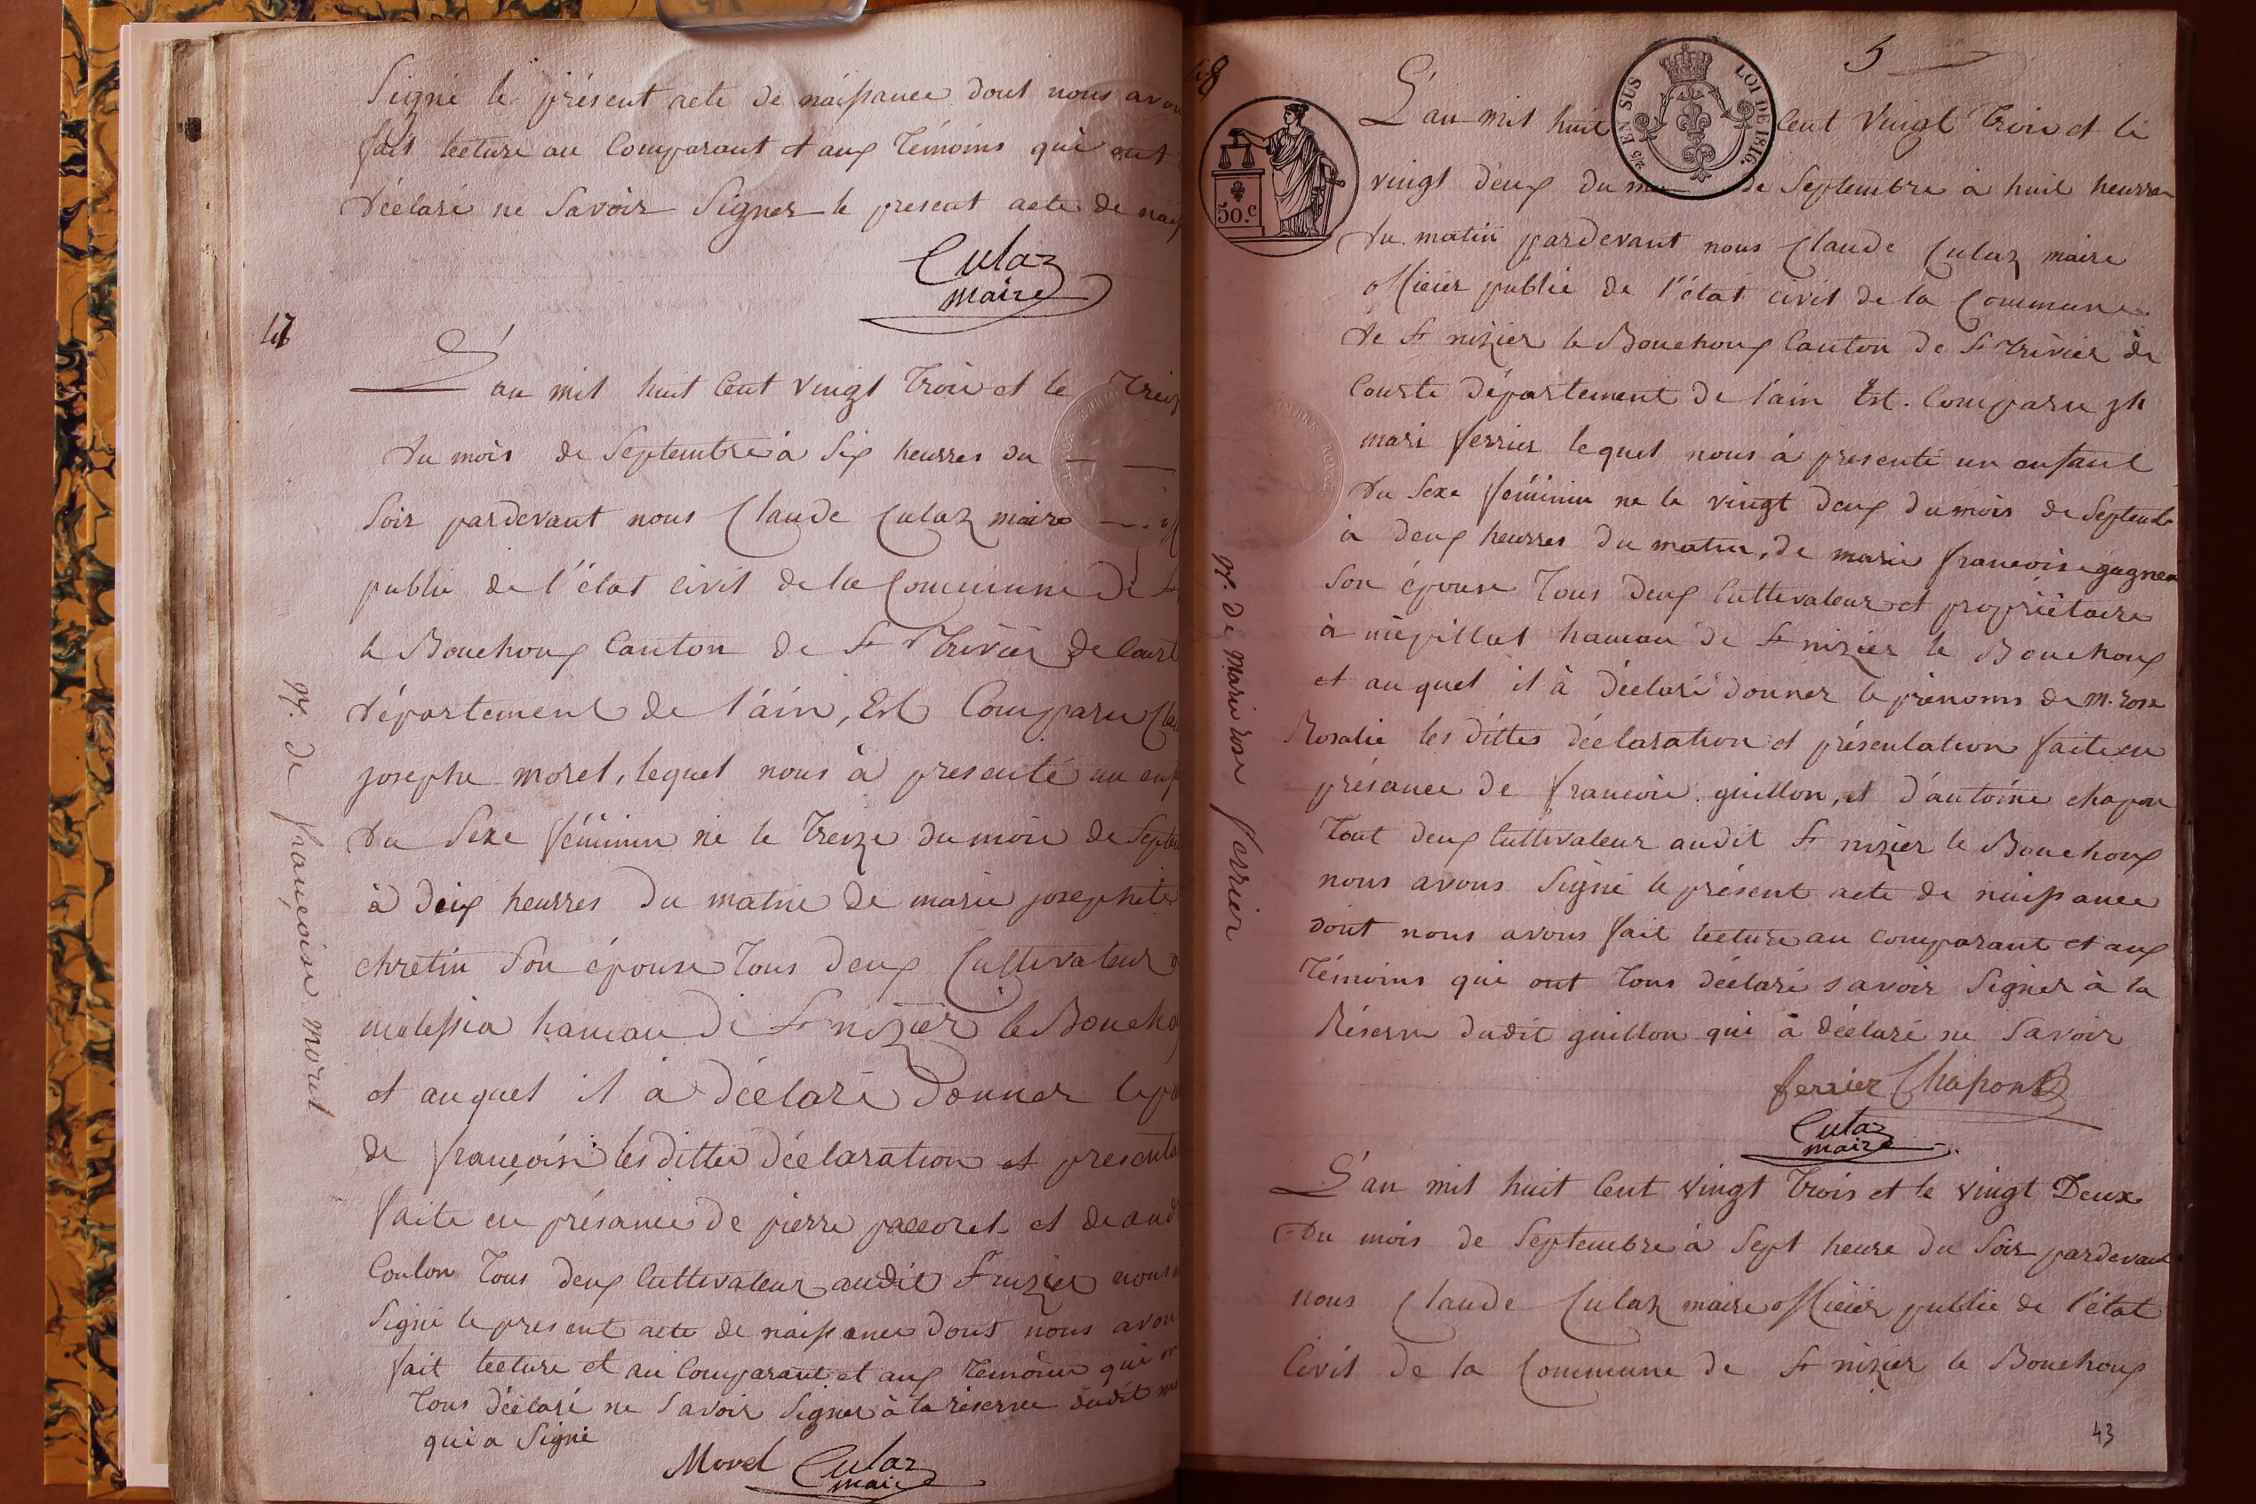 Signé le présent acte de naissance dont nous avon
fait lecture au Comparant et aux Témoins qui ont
déclaré ne Savoir Signer le present acte de nais
Culaz
maire
47
L'an mil huit Cent vingt trois et le Treiz
du mois de Septembre à Six heurres du
Soir pardevant nous Claude Culaz maire
public de l'état civil de la Commune de St
le Bouchoux Canton de St Trivier de Court
département de l'ain, Est Comparu Cla
josephe morel, lequel nous à presenté un enf
du Sexe féminin né le treize du mois de Septe
à deux heurres du matin de marie josephte
chretin Son épouse Tous deux Cultivateur
hameau de St nizier le Boucho
et auquel il à déclaré donner le p
de françoise les dittes déclaration et presenta
faite en présance de pierre paccoret et de and
Coulon Tous deux Cultivateur audit St nizier nous
Signé le present acte de naissance dont nous avon
fait lecture et au Comparant et aux Temoins qui
Tous déclaré ne Savoir Signer à la réserve dudit
qui a Signé
Morel Culaz
maire
N. de françoise morel
48
5
25 EN SUS LOI DE 1816.
50.c
L'an mil huit Cent Vingt Trois et le
vingt deux du de Septembre à huit heurres
du matin pardevant nous Claude Culaz maire
officier public de l'état civil de la Commune
de St nizier le Bouchoux Canton de St Trivier de
Courte département de l'ain Est. Comparu jh
mari ferrier lequel nous à presenté un enfant
du Sexe féminin né le vingt deux du mois de Septemb
à deux heurres du matin, de marie francoise gagneu
Son épouse Tous deux Cultivateur et propriétaire
à mépillat hameau de St nizier le Bouchoux
et auquel il à déclaré donner le prénoms de M. rose
Rosalie les dittes déclaration et présentation faite en
présance de francois guillon, et d'antoine chapon
Tout deux Cultivateur audit St nizier le Bouchoux
nous avons Signé le présent acte de naissance
dont nous avons fait lecture au comparant et aux
Témoins qui ont tous déclaré savoir Signer à la
Réserve dudit guillon qui à déclaré ne Savoir
ferrier Chapon
Culaz
maire
L'an mil huit Cent vingt Trois et le vingt Deux
Du mois de Septembre à Sept heure du Soir pardevant
nous Claude Culaz maire officier public de l'état
Civil de la Commune de St nizier le Bouchoux
N. de marie rose ferrier
43